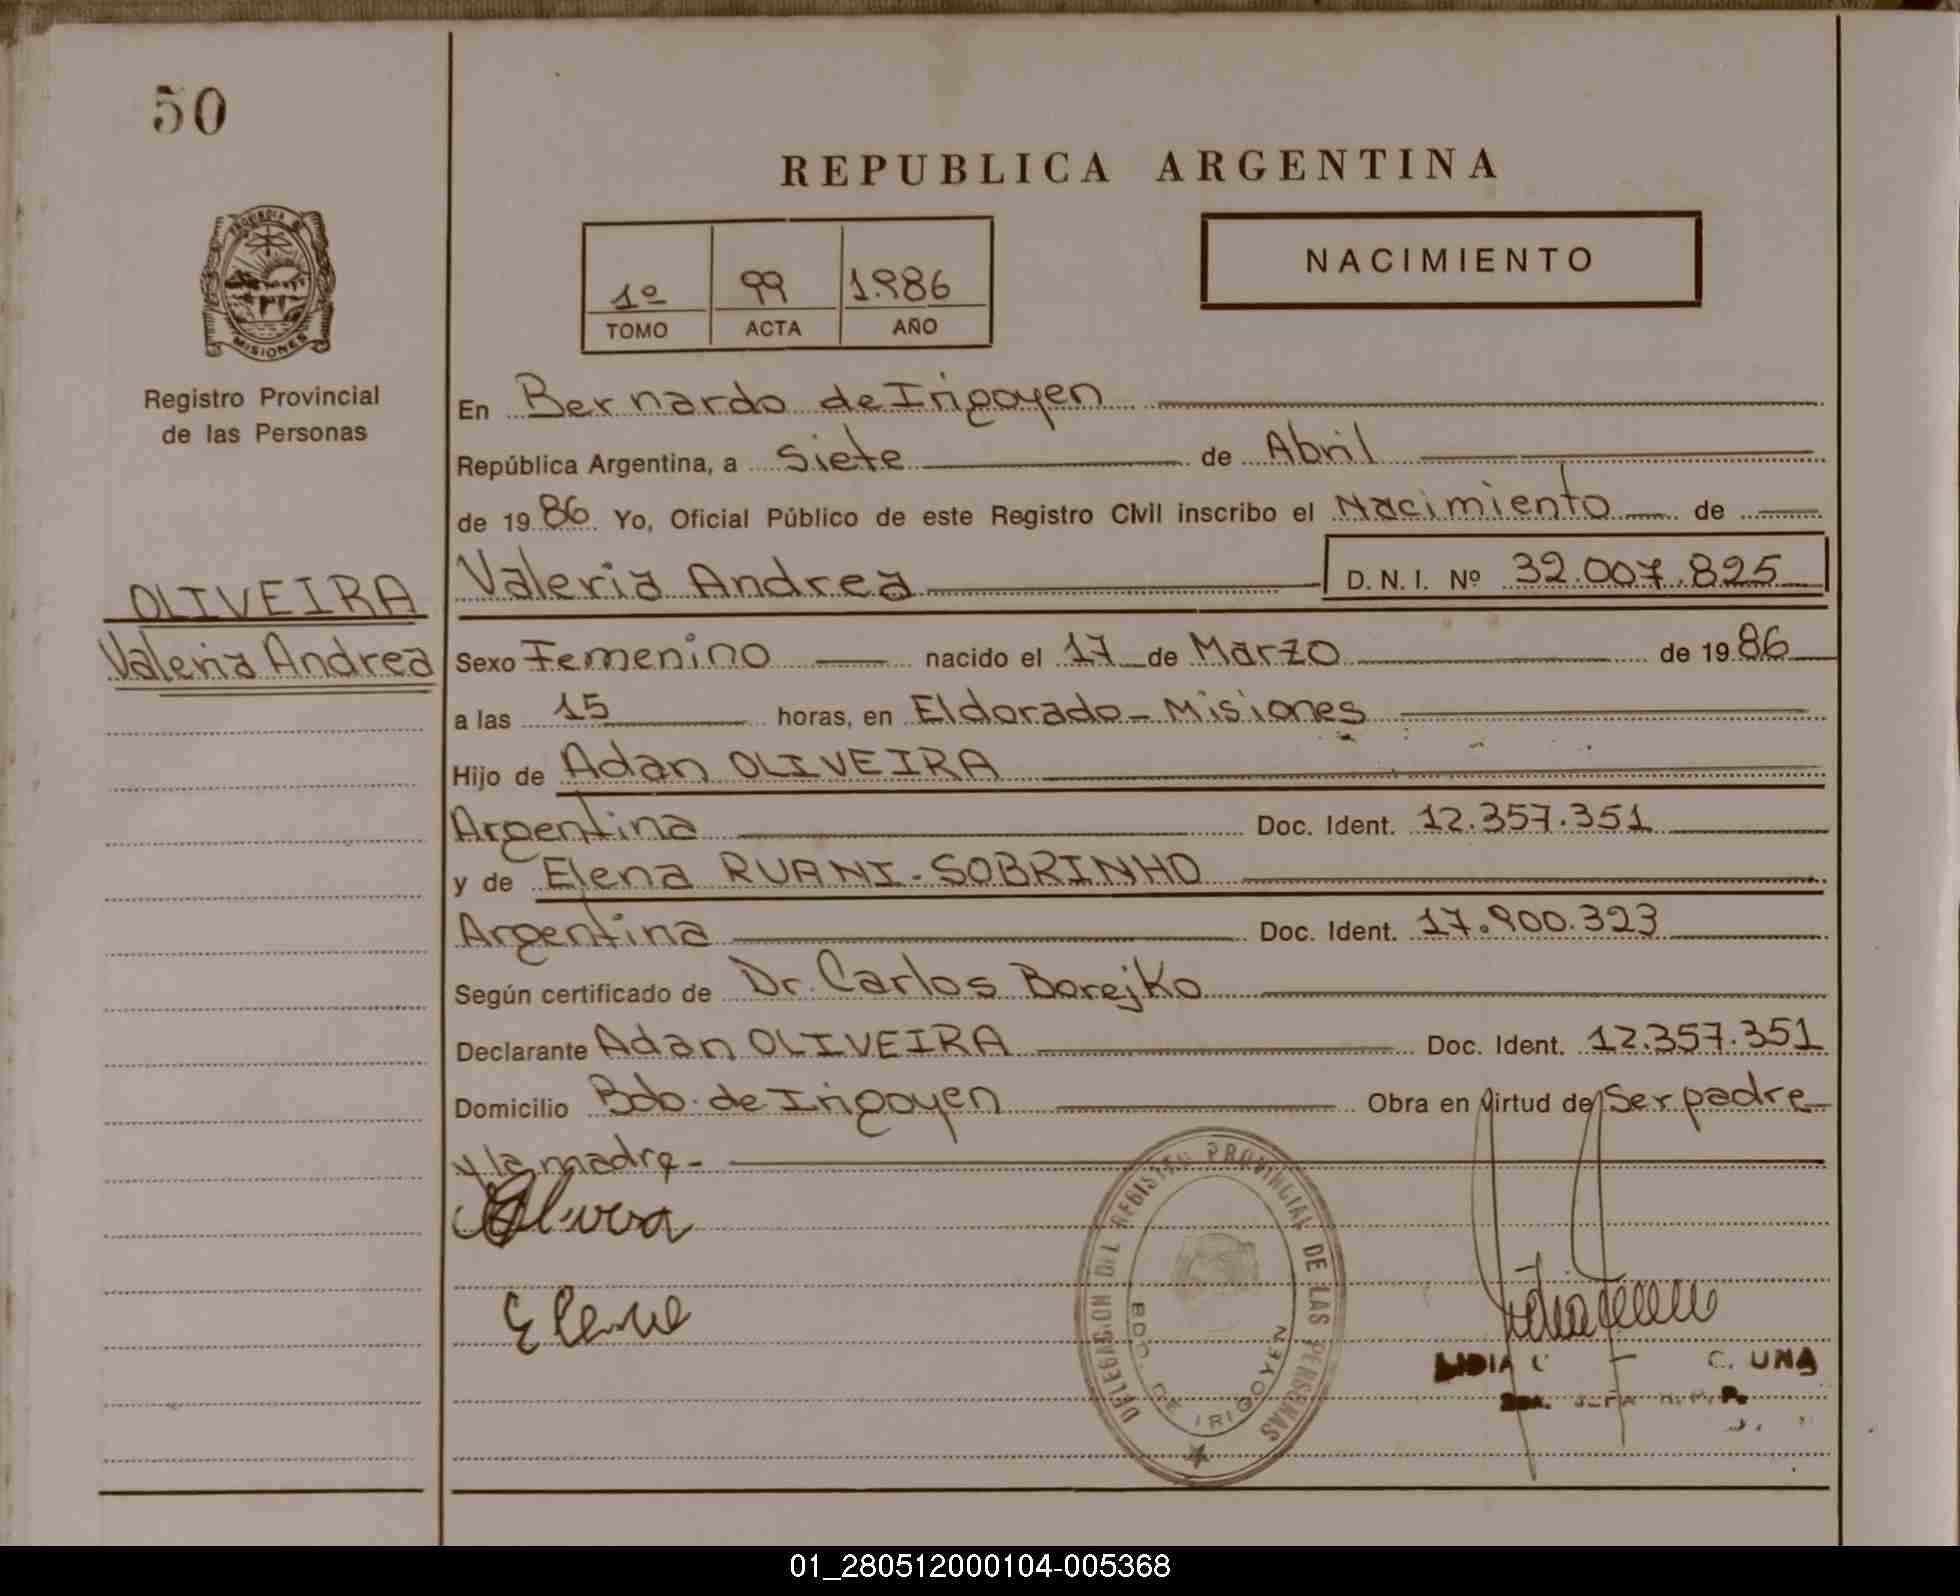 50
REPUBLICA ARGENTINA
1º 99 1.986
TOMO ACTA AÑO
NACIMIENTO
PROVINCIA DE
MISIONES
Registro Provincial
de las Personas
OLIVEIRA
Valeria Andrea
En Bernardo de Irigoyen
República Argentina, a siete de Abril
de 1986 Yo, Oficial Público de este Registro Civil inscribo el Nacimiento de
Valeria Andrea D.N.I. Nº 32.007.825
Sexo Femenino nacido el 17 de Marzo de 1986
a las 15 horas, en Eldorado - Misiones
Hijo de Adan OLIVEIRA
Argentina Doc. Ident. 12.357.351
y de Elena RUANI - SOBRINHO
Argentina Doc. Ident. 17.900.323
Según certificado de Dr. Carlos Borejko
Declarante Adan OLIVEIRA Doc. Ident. 12.357.351
Domicilio Bdo. de Irigoyen Obra en virtud de Ser padre
y la madre -
Elena
DELEGACION DEL REGISTRO PROVINCIAL DE LAS PERSONAS
BDO. DE IRIGOYEN
LIDIA
01_280512000104-005368